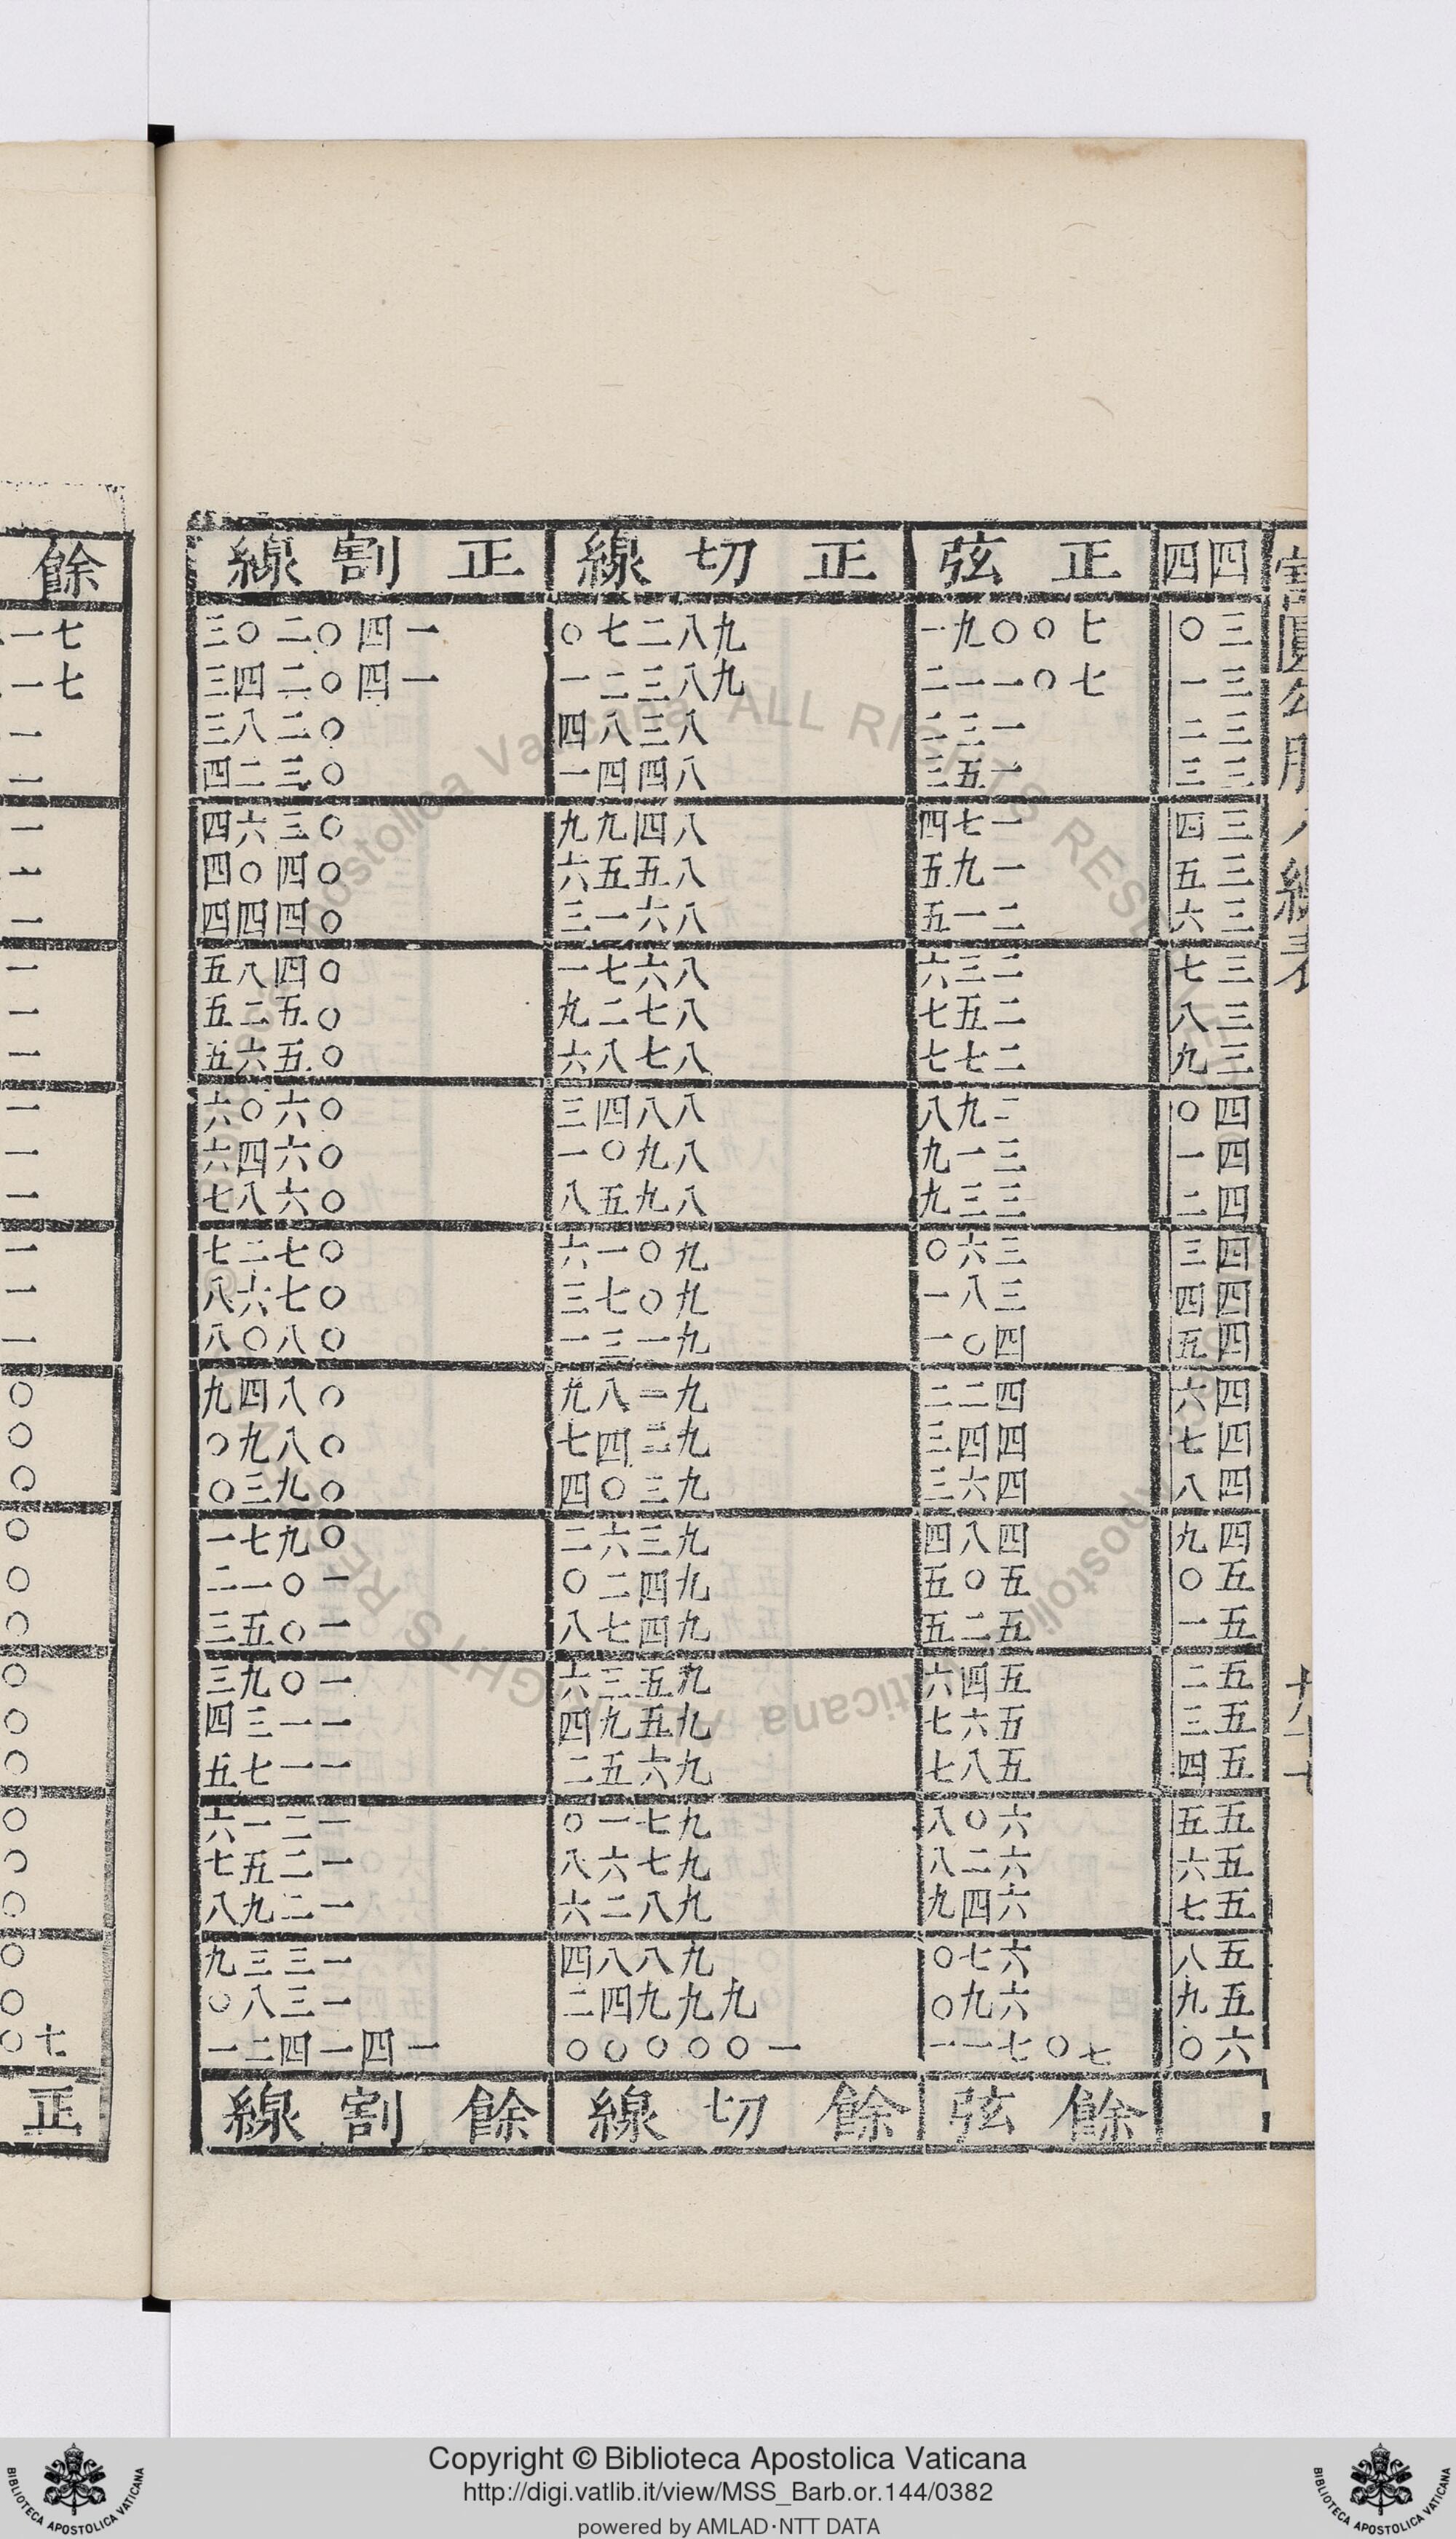 割圓勾股八線表
四四 正弦 正切線 正割線
三〇 七〇〇九一 九八二七〇 一四〇二〇三
三一 七〇一一二 九八三二一 一四〇二四三
三二 一三二 八三八四 〇二八三
三三 一五三 八四四一 〇三二四
三四 一七四 八四九九 〇三六四
三五 一九五 八五五六 〇四〇四
三六 二一五 八六一三 〇四四四
三七 二三六 八六七一 〇四八五
三八 二五七 八七二九 〇五二五
三九 二七七 八七八六 〇五六五
四〇 二九八 八八四三 〇六〇六
四一 三一九 八九〇一 〇六四六
四二 三三九 八九五八 〇六八七
四三 三六〇 九〇一六 〇七二七
四四 三八一 九〇七三 〇七六八
四五 四〇一 九一三一 〇八〇八
四六 四二二 九一八九 〇八四九
四七 四四三 九二四七 〇八九〇
四八 四六三 九三〇四 〇九三〇
四九 四八四 九三六二 〇九七一
五〇 五〇五 九四二〇 一〇一二
五一 五二五 九四七八 一〇五三
五二 五四六 九五三六 一〇九三
五三 五六七 九五九四 一一三四
五四 五八七 九六五二 一一七五
五五 六〇八 九七一〇 一二一六
五六 六二八 九七六八 一二五七
五七 六四九 九八二六 一二九八
五八 六七〇 九八八四 一三三九
五九 六九〇 九九九四二 一三八〇
六〇 七〇七一一 一〇〇〇〇〇 一四一四二一
餘弦 餘切線 餘割線
餘
正
Copyright © Biblioteca Apostolica Vaticana
http://digi.vatlib.it/view/MSS_Barb.or.144/0382
powered by AMLAD·NTT DATA